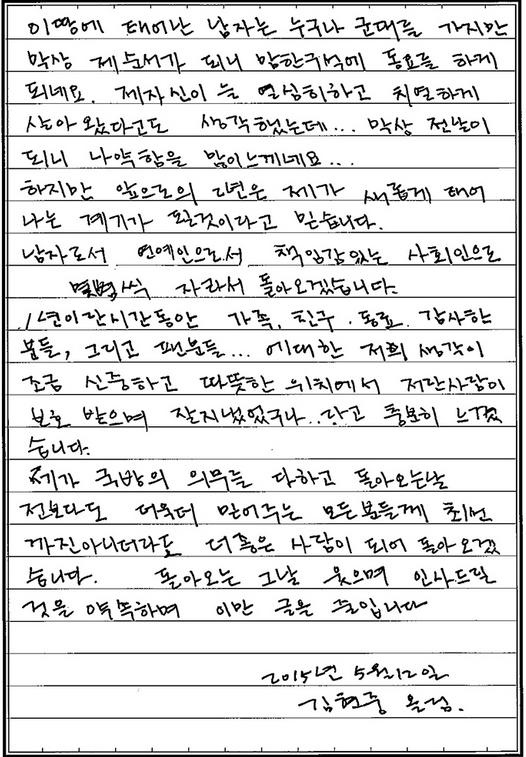 이땅에 태어난 남자는 누구나 군대를 가지만
막상 제 순서가 되니 맘한구석에 동요를 하게
되네요. 제자신이 늘 열심히하고 치열하게
살아 왔다고도 생각했는데... 막상 전날이
되니 나약함을 많이느끼네요...
하지만 앞으로의 2년은 제가 새롭게 태어
나는 계기가 될것이라고 믿습니다.
남자로서 연예인으로서 책임감있는 사회인으로
몇뼘씩 자라서 돌아오겠습니다.
1년이란시간동안 가족, 친구, 동료, 감사한
분들, 그리고 팬분들... 에대한 저희 생각이
조금 신중하고 따뜻한 위치에서 저란사람이
보호 받으며 잘지냈었구나..라고 충분히 느꼈
습니다.
제가 국방의 의무를 다하고 돌아오는날
전보다도 더욱더 믿어주는 모든분들께 최선
까진아니더라도 더좋은 사람이 되어 돌아오겠
습니다. 돌아오는 그날 웃으며 인사드릴
것을 약속하며 이만 글을 줄입니다
2015년 5월12일
김현중 올림.